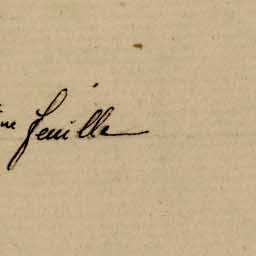 ne feuille